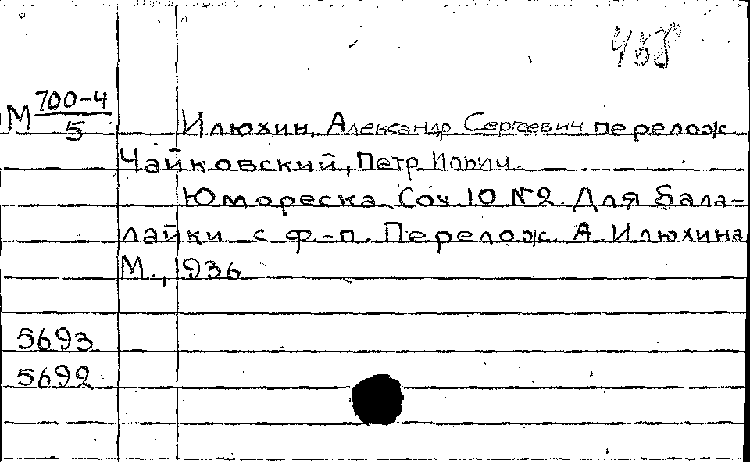 458
М 700-4/5
Илюхин, Александр Сергеевич перелож
Чайковский, Петр Ильич
Юмореска Соч 10 №2 Для бала-
лайки с ф-п. Перелож. А. Илюхина
М., 936
5693
5692